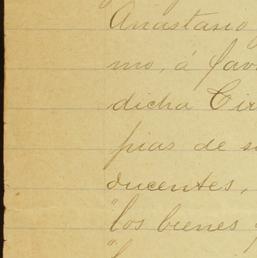 Anastasio
mo, á fav
dicha Cir
pias de s
ducentes,
"los bienes